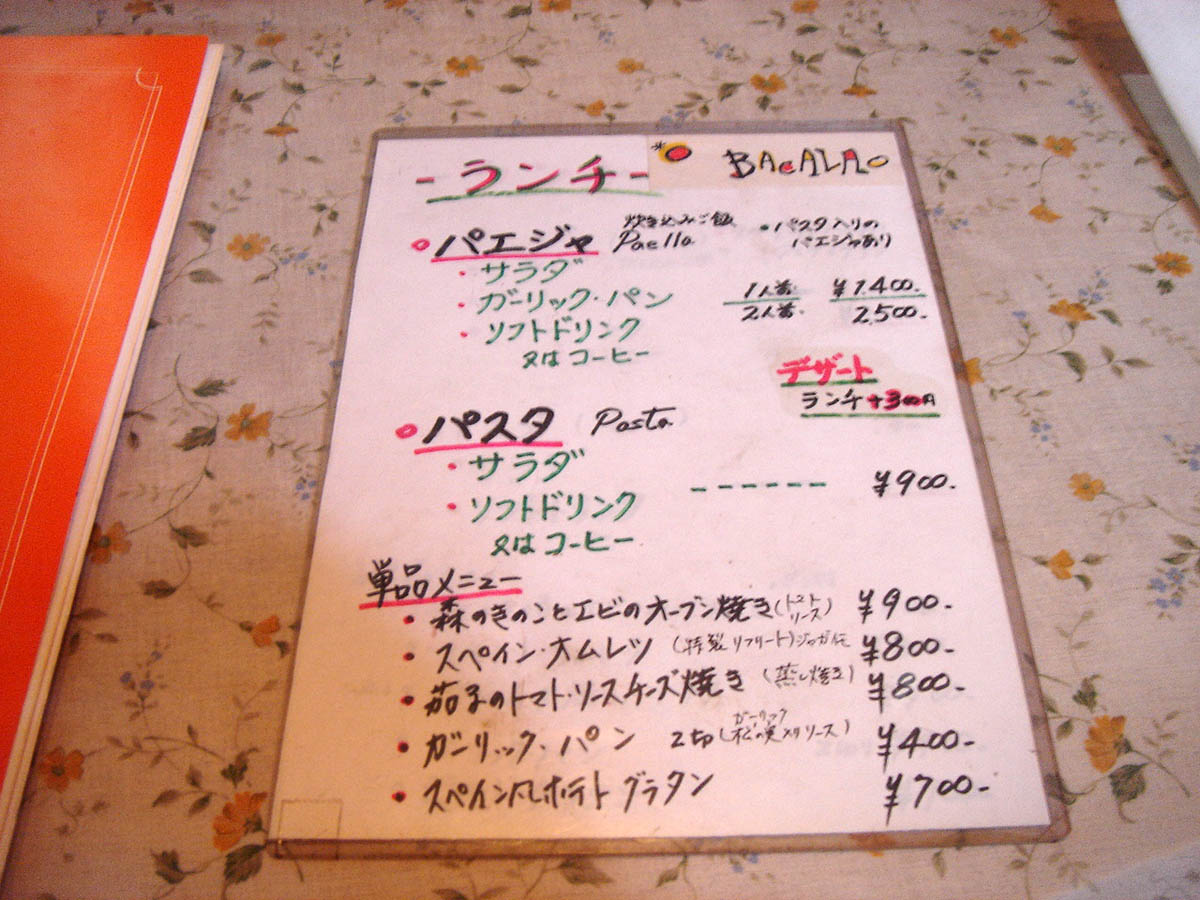 -ランチ-
BACALAO
パエジャ Paella 炊き込みご飯
・パスタ入りの
パエジャあり
・サラダ
・ガーリック・パン
1人前 ¥1.400-
2人前 2,500-
・ソフトドリンク
又はコーヒー
デザート
ランチ+300円
パスタ Pasta
・サラダ
------ ¥900-
・ソフトドリンク
又はコーヒー
単品メニュー
・森のきのことエビのオーブン焼き(トマトソース) ¥900-
・スペイン・オムレツ (特製リフリート)ジャガ ¥800-
・茄子のトマト・ソースチーズ焼き (蒸し焼き) ¥800-
・ガーリック・パン 2切(ガーリック松の実入りソース) ¥400-
・スペイン風ポテトグラタン ¥700-